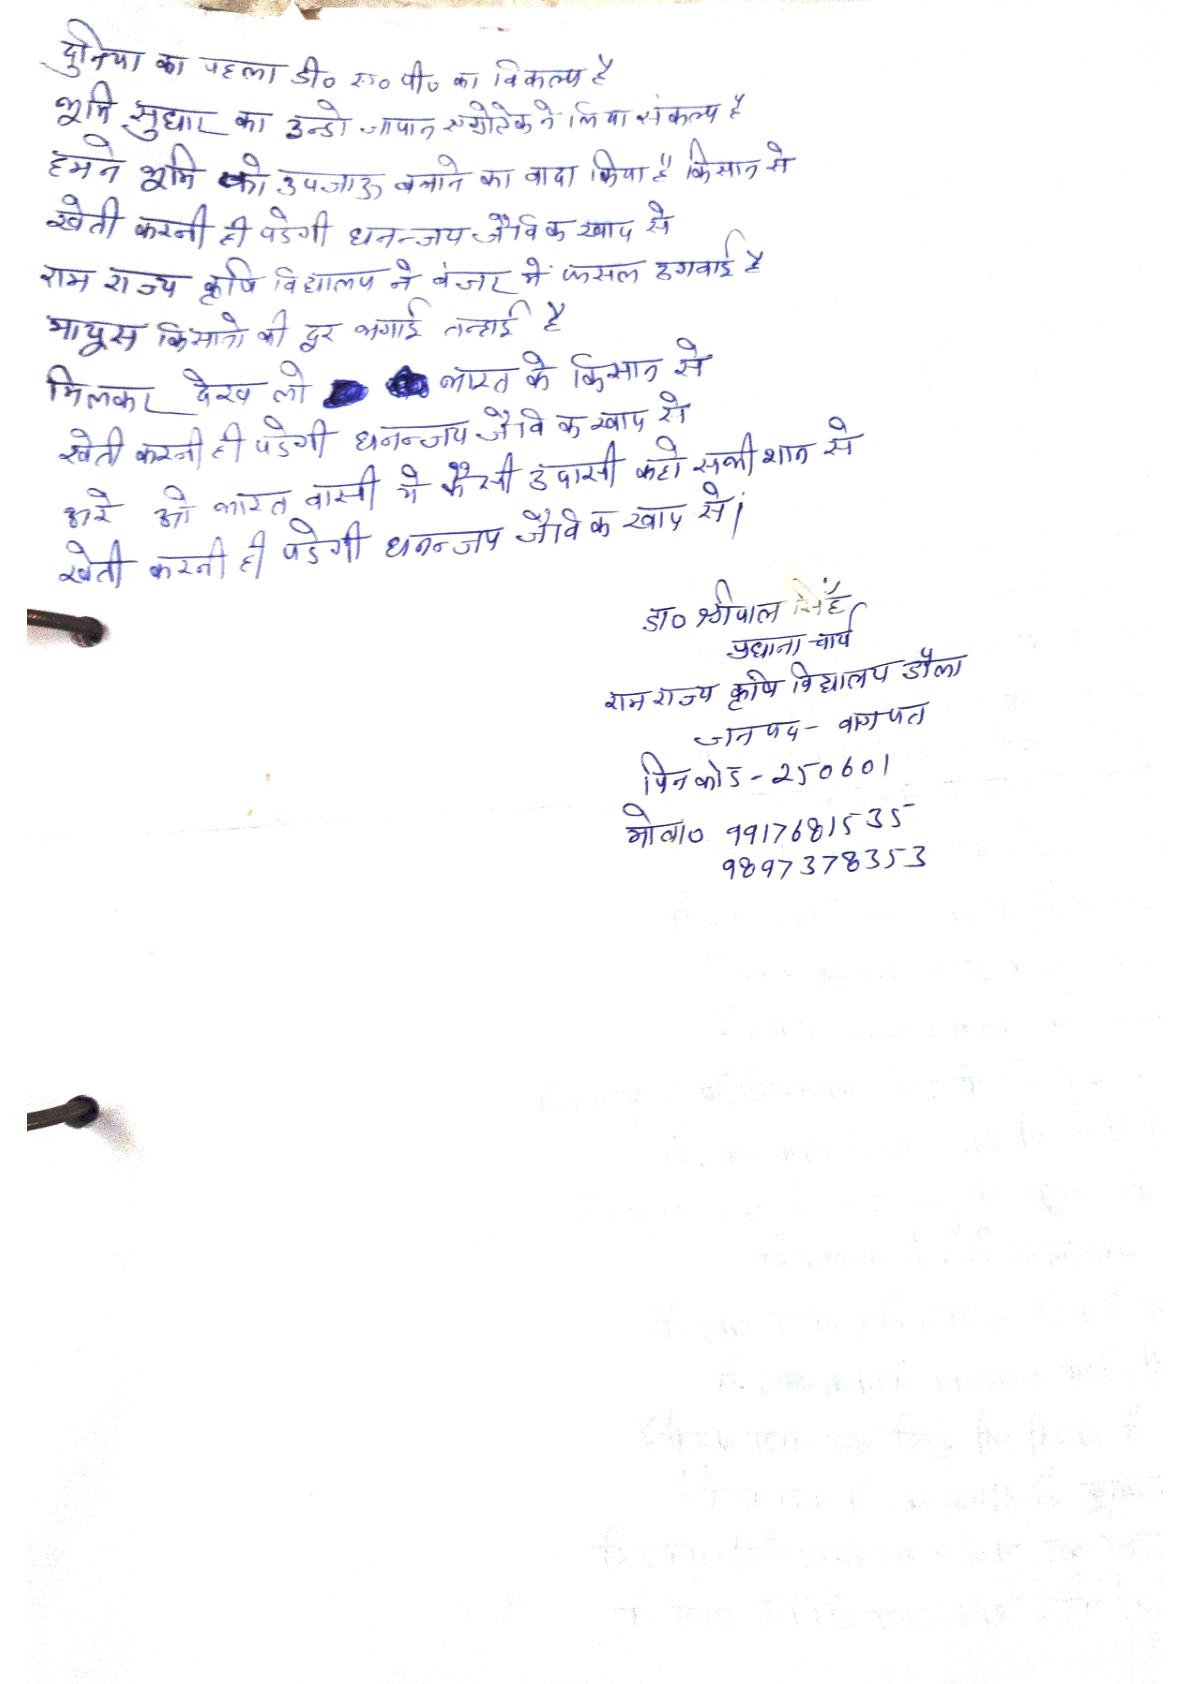 दुनिया का पहला डी० ए० पी० का विकल्प है
भूमि सुधार का उन्डो जापान एग्रोटेक ने लिया संकल्प है
हमने भूमि को उपजाऊ बनाने का वादा किया है किसान से
खेती करनी ही पडेगी धनन्जय जैविक खाद से
राम राज्य कृषि विद्यालय ने बंजर में फसल उगवाई है
मायूस किसानो की दूर भगाई तन्हाई है
मिलकर देख लो भारत के किसान से
खेती करनी ही पडेगी धनन्जय जैविक खाद से
अरे ओ भारत वासी ये कैसी उदासी कहो सभी शान से
खेती करनी ही पडेगी धनन्जय जैविक खाद से।
डा० श्रीपाल सिंह
प्रधानाचार्य
राम राज्य कृषि विद्यालय डौला
जनपद - बागपत
पिन कोड - 250601
मोबा० 9917681535
9897378353